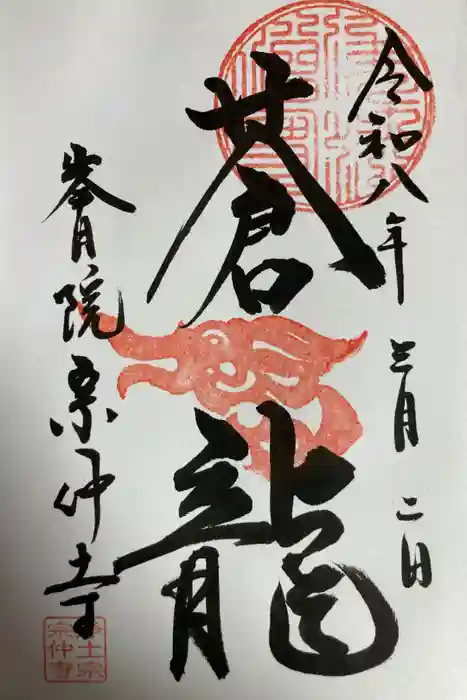 令和八年三月二日
蒼龍
峯月院宗仲寺
浄土宗
宗仲寺